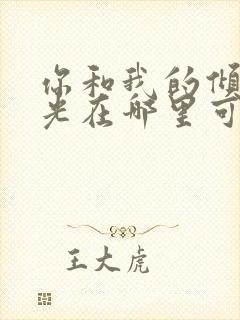 你和我的倾
光在哪里可
王大虎